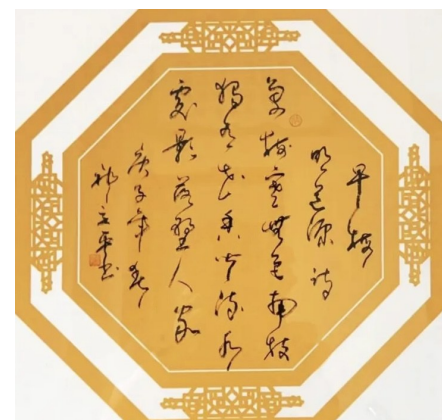 早梅
明道源詩
萬樹寒無色南枝
獨有花香聞流水
處影落野人家
庚子年春
書